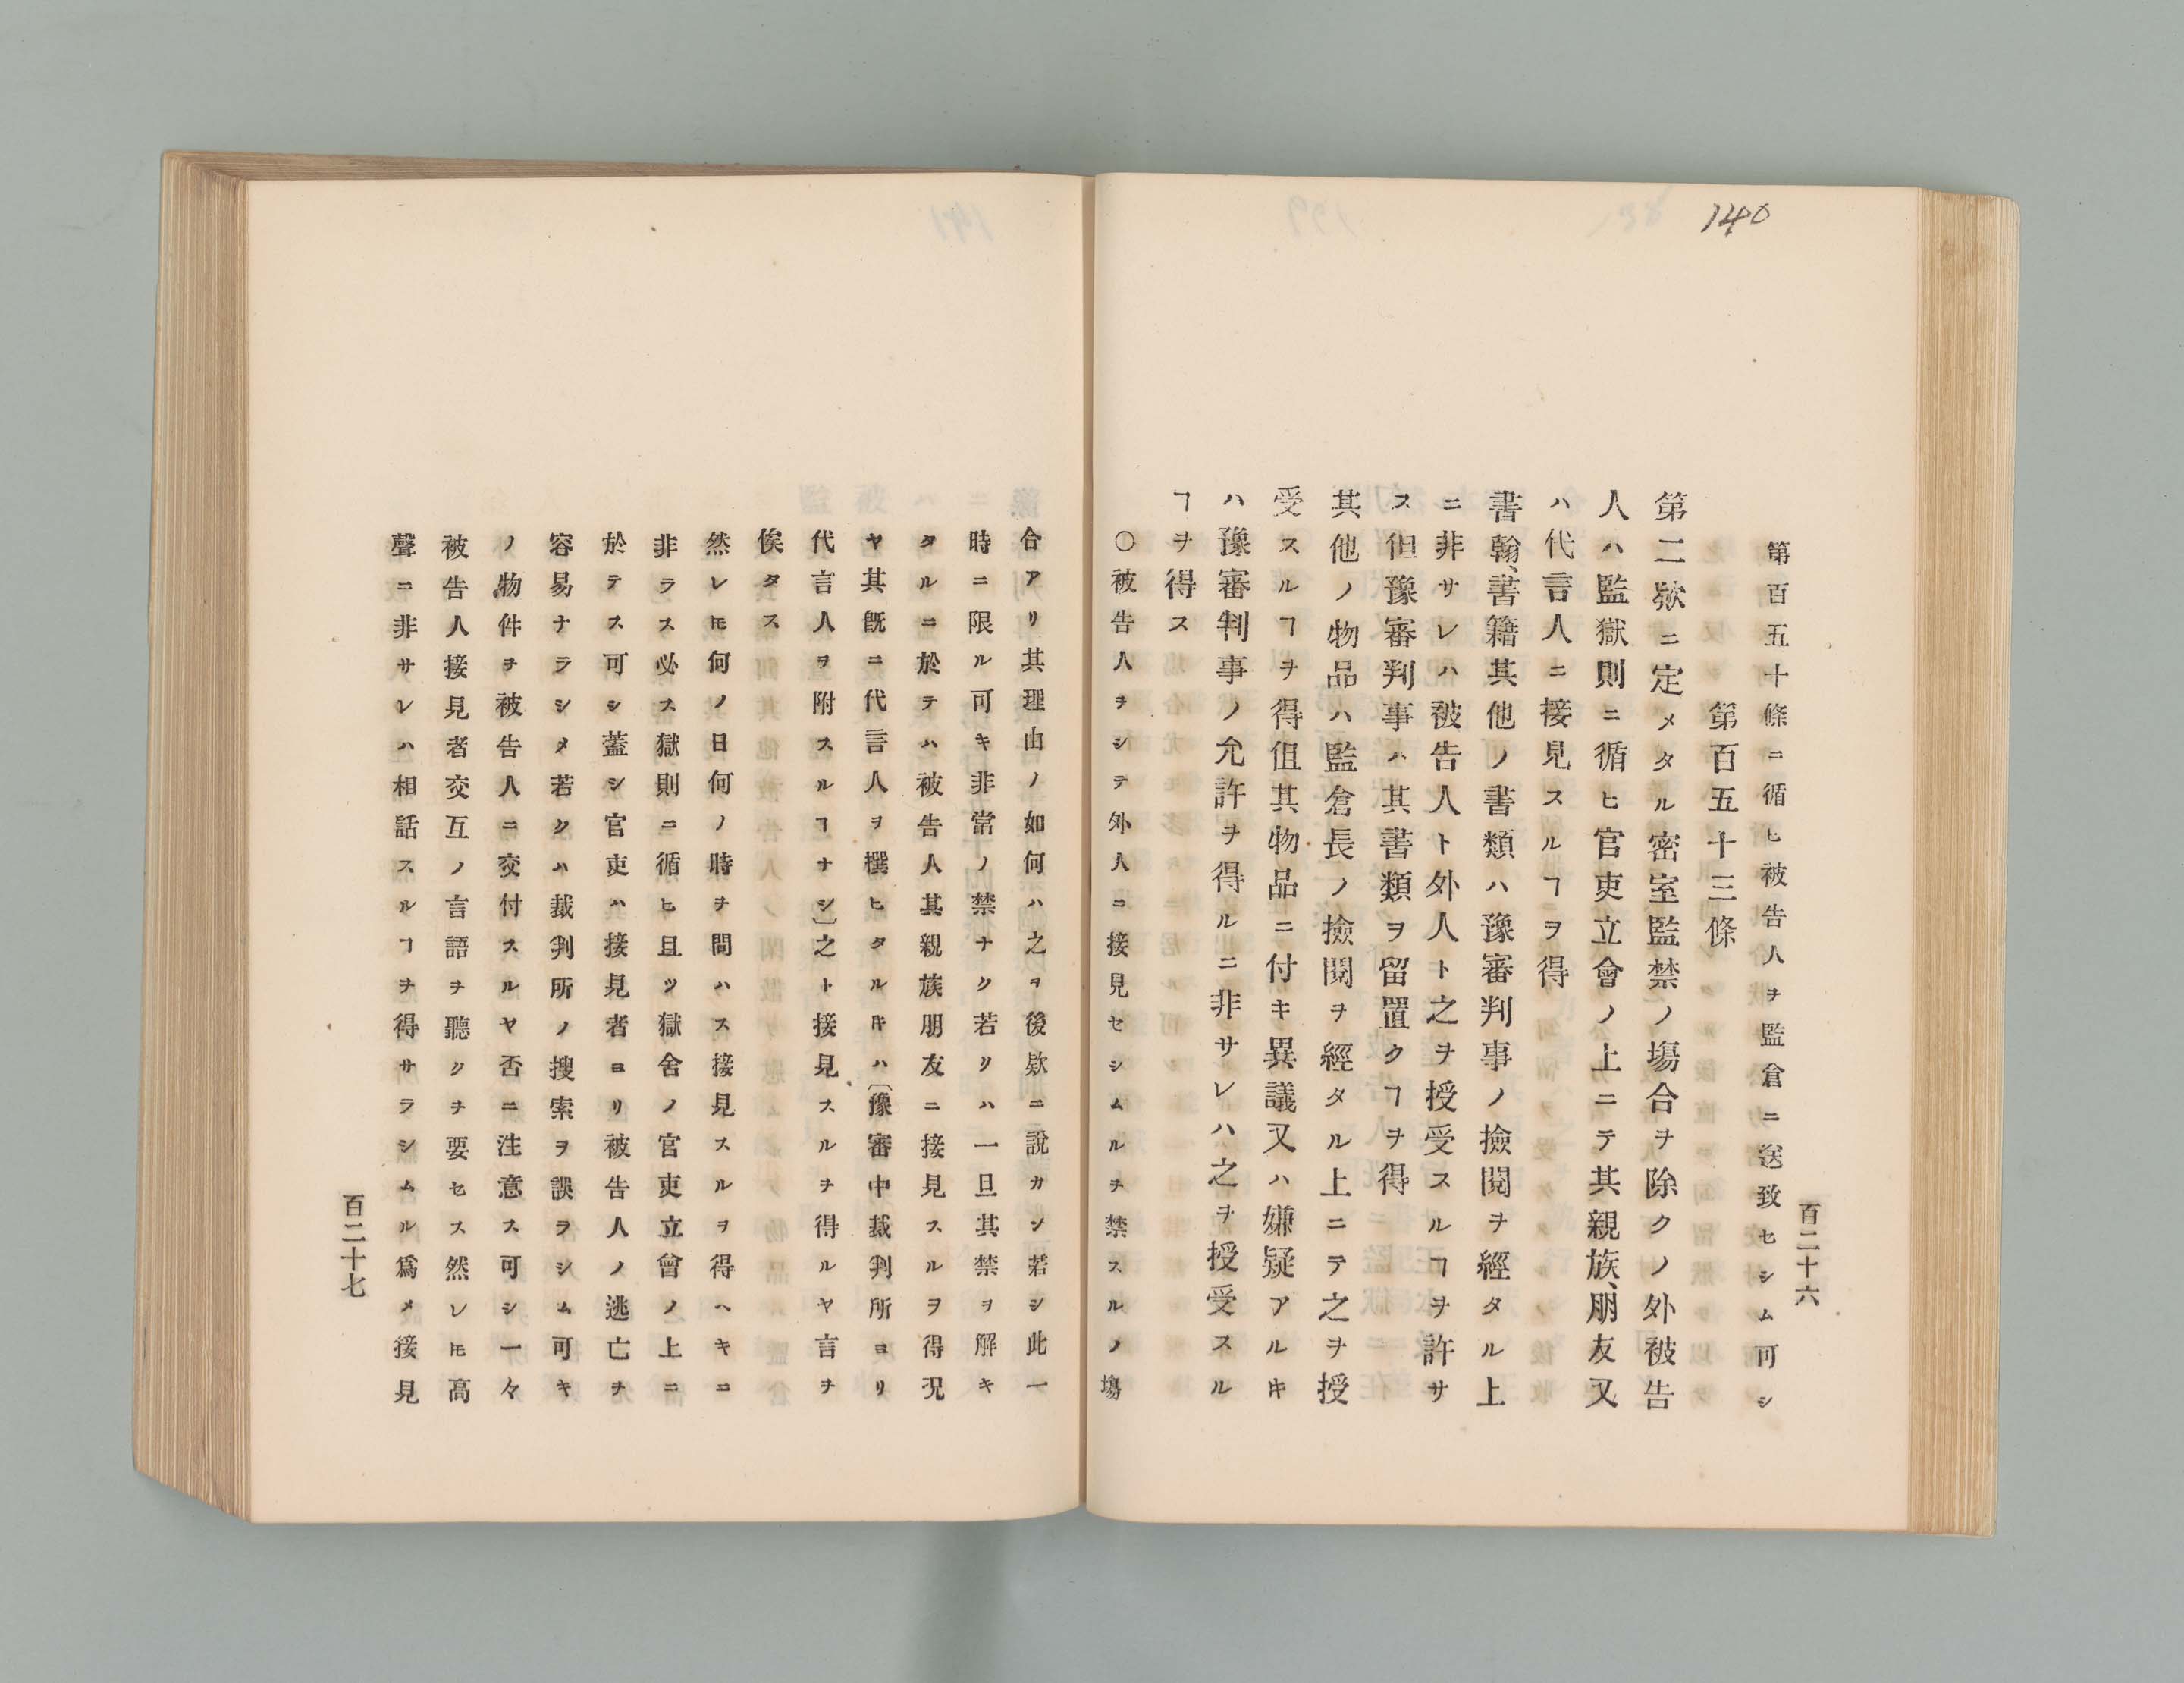 140
百二十六
第百五十條ニ循ヒ被告人ヲ監倉ニ送致セシム可シ
第百五十三條
第二欵ニ定メタル密室監禁ノ塲合ヲ除クノ外被告
人ハ監獄則ニ循ヒ官吏立會ノ上ニテ其親族、朋友又
ハ代言人ニ接見スルヿヲ得
書翰、書籍其他ノ書類ハ豫審判事ノ撿閱ヲ經タル上
ニ非サレハ被告人ト外人ト之ヲ授受スルヿヲ許サ
ス但豫審判事ハ其書類ヲ留置クヿヲ得
其他ノ物品ハ監倉長ノ撿閱ヲ經タル上ニテ之ヲ授
受スルヿヲ得但其物品ニ付キ異議又ハ嫌疑アルキ
ハ豫審判事ノ允許ヲ得ルニ非サレハ之ヲ授受スル
ヿヲ得ス
〇被告人ヲシテ外人ニ接見セシムルヲ禁スルノ塲
合アリ其理由ノ如何ハ之ヲ後欵ニ說カン若シ此一
時ニ限ル可キ非常ノ禁ナク若クハ一旦其禁ヲ解キ
タルニ於テハ被告人其親族朋友ニ接見スルヲ得況
ヤ其既ニ代言人ヲ撰ヒタルキハ〔豫審中裁判所ヨリ
代言人ヲ附スルヿナシ〕之ト接見スルヲ得ルヤ言ヲ
俟タス
然レ𪜈何ノ日何ノ時ヲ問ハス接見スルヲ得ヘキニ
非ラス必ス獄則ニ循ヒ且ツ獄舍ノ官吏立會ノ上ニ
於テス可シ蓋シ官吏ハ接見者ヨリ被告人ノ逃亡ヲ
容易ナラシメ若クハ裁判所ノ搜索ヲ誤ラシム可キ
ノ物件ヲ被告人ニ交付スルヤ否ニ注意ス可シ一々
被告人接見者交互ノ言語ヲ聽クヲ要セス然レ𪜈高
聲ニ非サレハ相話スルヿヲ得サラシムル爲メ接見
百二十七